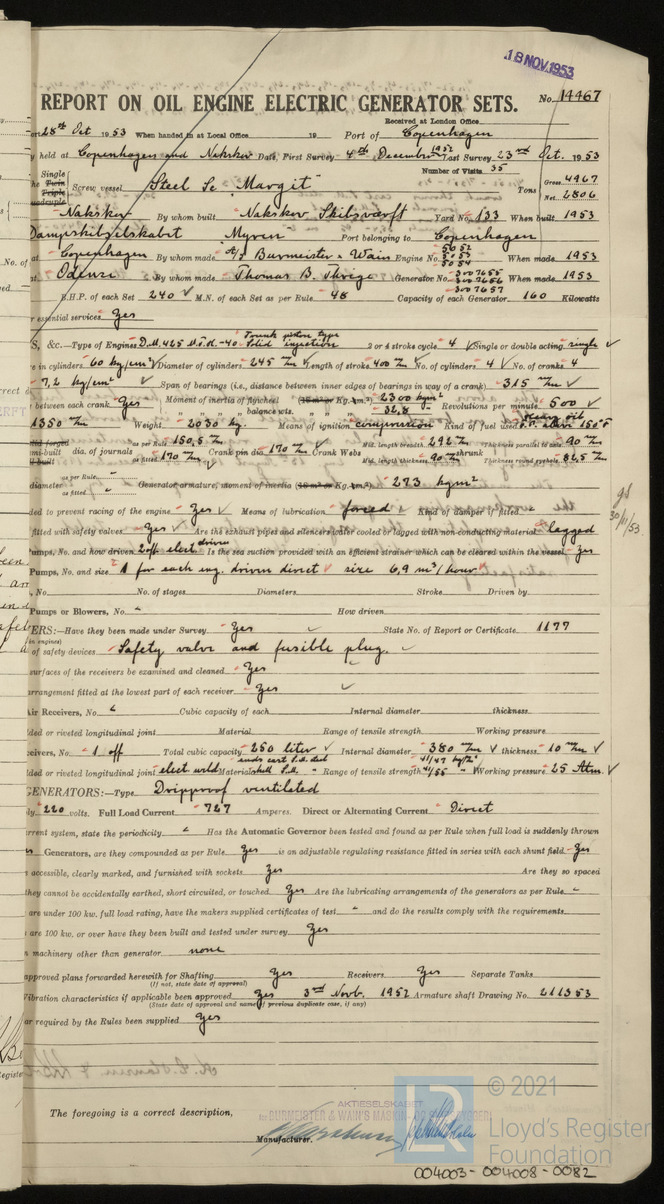 18 NOV. 1953
REPORT ON OIL ENGINE ELECTRIC GENERATOR SETS. No. 14467
Received at London Office
28th Oct 1953 When handed in at Local Office 19 Port of Copenhagen
y held at Copenhagen and Nakskov Date, First Survey 4th December 1952 Last Survey 23rd Oct. 1953
Number of Visits 35
Single
Twin
Triple
Quadruple
Screw vessel Steel Sc "Margit" Tons Gross 4967
Net 2806
Nakskov By whom built Nakskov Skibsværft Yard No. 133 When built 1953
Dampskibsselskabet "Myren" Port belonging to Copenhagen
at Copenhagen By whom made A/S Burmeister & Wain Engine No. 5052 5053 5054 When made 1953
at Odense By whom made Thomas B. Thrige Generator No. 3007655 3007656 3007657 When made 1953
B.H.P. of each Set 240 M.N. of each Set as per Rule 48 Capacity of each Generator 160 Kilowatts
r essential services Yes
S, &c.—Type of Engines D.M. 425 M.T.H.-40 Trunk piston type Solid injection 2 or 4 stroke cycle 4 Single or double acting single
e in cylinders 60 kg/cm² Diameter of cylinders 245 m/m Length of stroke 400 m/m No. of cylinders 4 No. of cranks 4
7,2 kg/cm² Span of bearings (i.e., distance between inner edges of bearings in way of a crank) 315 m/m
between each crank Yes Moment of inertia of flywheel Kg.m²) 2300 kgm² Revolutions per minute 500
" " " balance wts. " " 32,8
1350 m/m Weight 2030 kg Means of ignition compression Kind of fuel used Heavy oil F.P. above 150°F
dia. of journals as per Rule 150,5 m/m as fitted 170 m/m Crank pin dia. 170 m/m Crank Webs Mid. length breadth 292 m/m Thickness parallel to axis 90 m/m
Mid. length thickness 90 m/m shrunk Thickness round eyehole 82,5 m/m
diameter as per Rule - as fitted - Generator armature, moment of inertia Kg.m²) 273 kgm²
ded to prevent racing of the engine Yes Means of lubrication forced Kind of damper if fitted -
fitted with safety valves Yes Are the exhaust pipes and silencers water cooled or lagged with non-conducting material lagged
Pumps, No. and how driven 2 off elect driven Is the sea suction provided with an efficient strainer which can be cleared within the vessel Yes
Pumps, No. and size 1 for each eng. driven direct size 6,9 m³/hour
, No. No. of stages Diameters Stroke Driven by
Pumps or Blowers, No. - How driven
ERS:—Have they been made under Survey Yes State No. of Report or Certificate 1177
of safety devices Safety valve and fusible plug.
surfaces of the receivers be examined and cleaned Yes
arrangement fitted at the lowest part of each receiver Yes
Air Receivers, No. - Cubic capacity of each Internal diameter thickness
lded or riveted longitudinal joint Material Range of tensile strength Working pressure
ceivers, No. 1 off Total cubic capacity 250 liter Internal diameter 380 m/m thickness 10 m/m
lded or riveted longitudinal joint elect. weld Material ends cast S.M. steel shell S.M. " Range of tensile strength 41/47 kg/m² 41/55 " Working pressure 25 Atm.
GENERATORS:—Type Dripproof ventilated
ly 220 volts. Full Load Current 727 Amperes. Direct or Alternating Current Direct
rrent system, state the periodicity - Has the Automatic Governor been tested and found as per Rule when full load is suddenly thrown
Generators, are they compounded as per Rule Yes is an adjustable regulating resistance fitted in series with each shunt field Yes
accessible, clearly marked, and furnished with sockets Yes Are they so spaced
they cannot be accidentally earthed, short circuited, or touched Yes Are the lubricating arrangements of the generators as per Rule -
are under 100 kw. full load rating, have the makers supplied certificates of test - and do the results comply with the requirements
are 100 kw. or over have they been built and tested under survey Yes
n machinery other than generator none
approved plans forwarded herewith for Shafting Yes Receivers Yes Separate Tanks
(If not, state date of approval)
Vibration characteristics if applicable been approved Yes 3rd Novb. 1952 Armature shaft Drawing No. 211353
(State date of approval and name of previous duplicate case, if any)
ar required by the Rules been supplied Yes
30/11/53
The foregoing is a correct description,
AKTIESELSKABET
BURMEISTER & WAIN'S MASKIN- OG SKIBSBYGGERI
Manufacturer.
LR
© 2021
Lloyd's Register
Foundation
004003-004008-0082